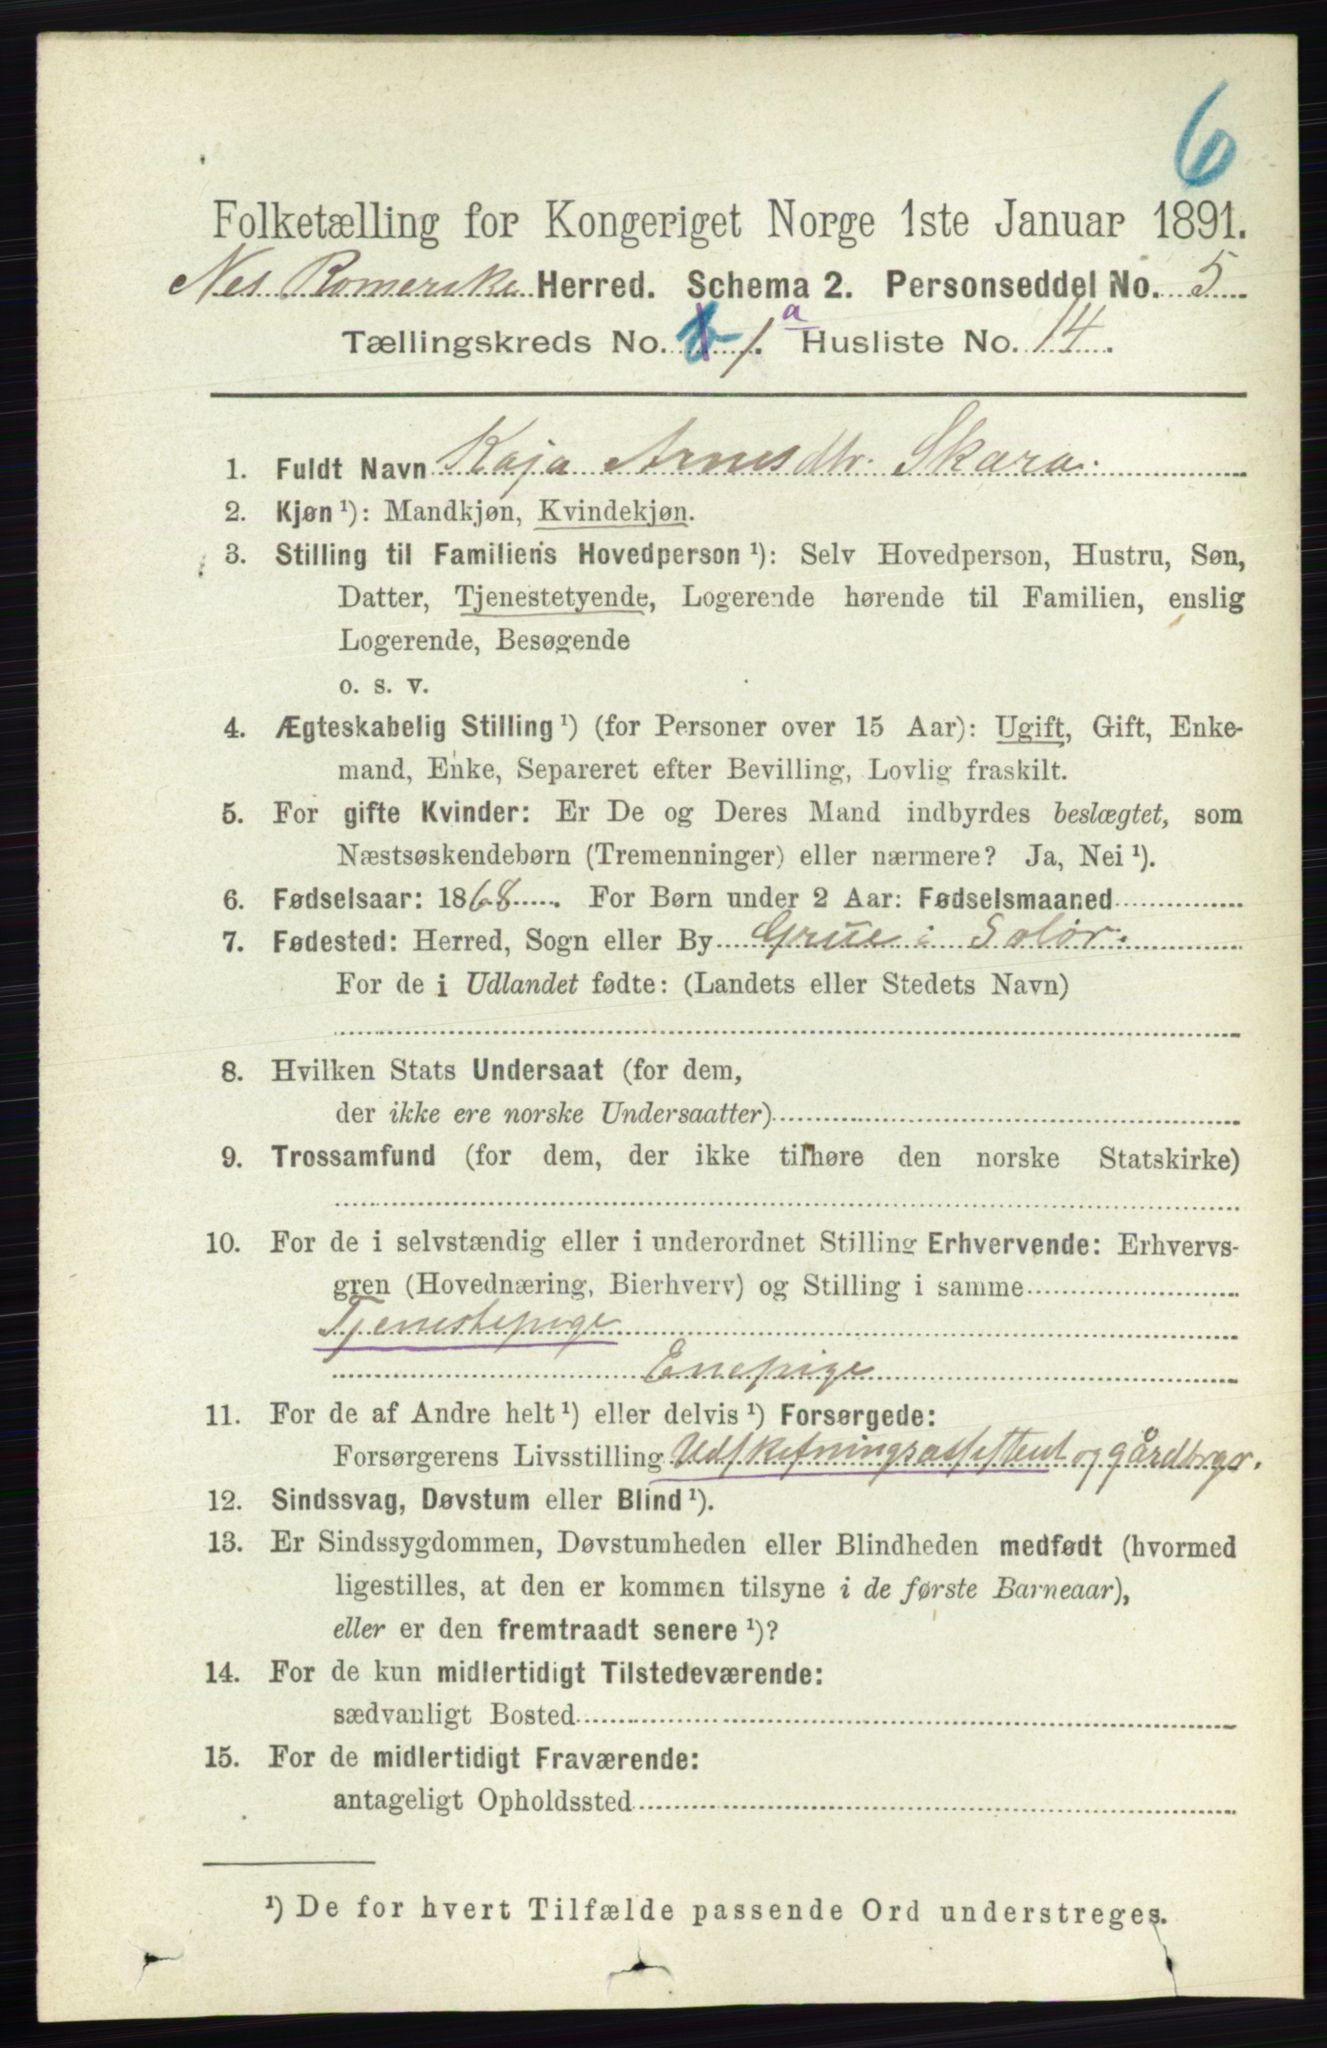 6
Folketælling for Kongeriget Norge 1ste Januar 1891.
Nes Romerike Herred. Schema 2. Personseddel No. 5
Tællingskreds No. 1.a Husliste No. 14.
1. Fuldt Navn Kaja Arnesdtr. Skara.
2. Kjøn ¹): Mandkjøn, Kvindekjøn.
3. Stilling til Familiens Hovedperson ¹): Selv Hovedperson, Hustru, Søn,
Datter, Tjenestetyende, Logerende hørende til Familien, enslig
Logerende, Besøgende
o. s. v.
4. Ægteskabelig Stilling ¹) (for Personer over 15 Aar): Ugift, Gift, Enke-
mand, Enke, Separeret efter Bevilling, Lovlig fraskilt.
5. For gifte Kvinder: Er De og Deres Mand indbyrdes beslægtet, som
Næstsøskendebørn (Tremenninger) eller nærmere? Ja, Nei ¹).
6. Fødselsaar: 1868. For Børn under 2 Aar: Fødselsmaaned
7. Fødested: Herred, Sogn eller By Grue i Solør.
For de i Udlandet fødte: (Landets eller Stedets Navn)
8. Hvilken Stats Undersaat (for dem,
der ikke ere norske Undersaatter)
9. Trossamfund (for dem, der ikke tilhøre den norske Statskirke)
10. For de i selvstændig eller i underordnet Stilling Erhvervende: Erhvervs-
gren (Hovednæring, Bierhverv) og Stilling i samme
Tjenestepige
Enepige
11. For de af Andre helt ¹) eller delvis ¹) Forsørgede:
Forsørgerens Livsstilling Udskiftningsassistent og gårdbrgr.
12. Sindssvag, Døvstum eller Blind ¹).
13. Er Sindssygdommen, Døvstumheden eller Blindheden medfødt (hvormed
ligestilles, at den er kommen tilsyne i de første Barneaar),
eller er den fremtraadt senere ¹)?
14. For de kun midlertidigt Tilstedeværende:
sædvanligt Bosted
15. For de midlertidigt Fraværende:
antageligt Opholdssted
¹) De for hvert Tilfælde passende Ord understreges.